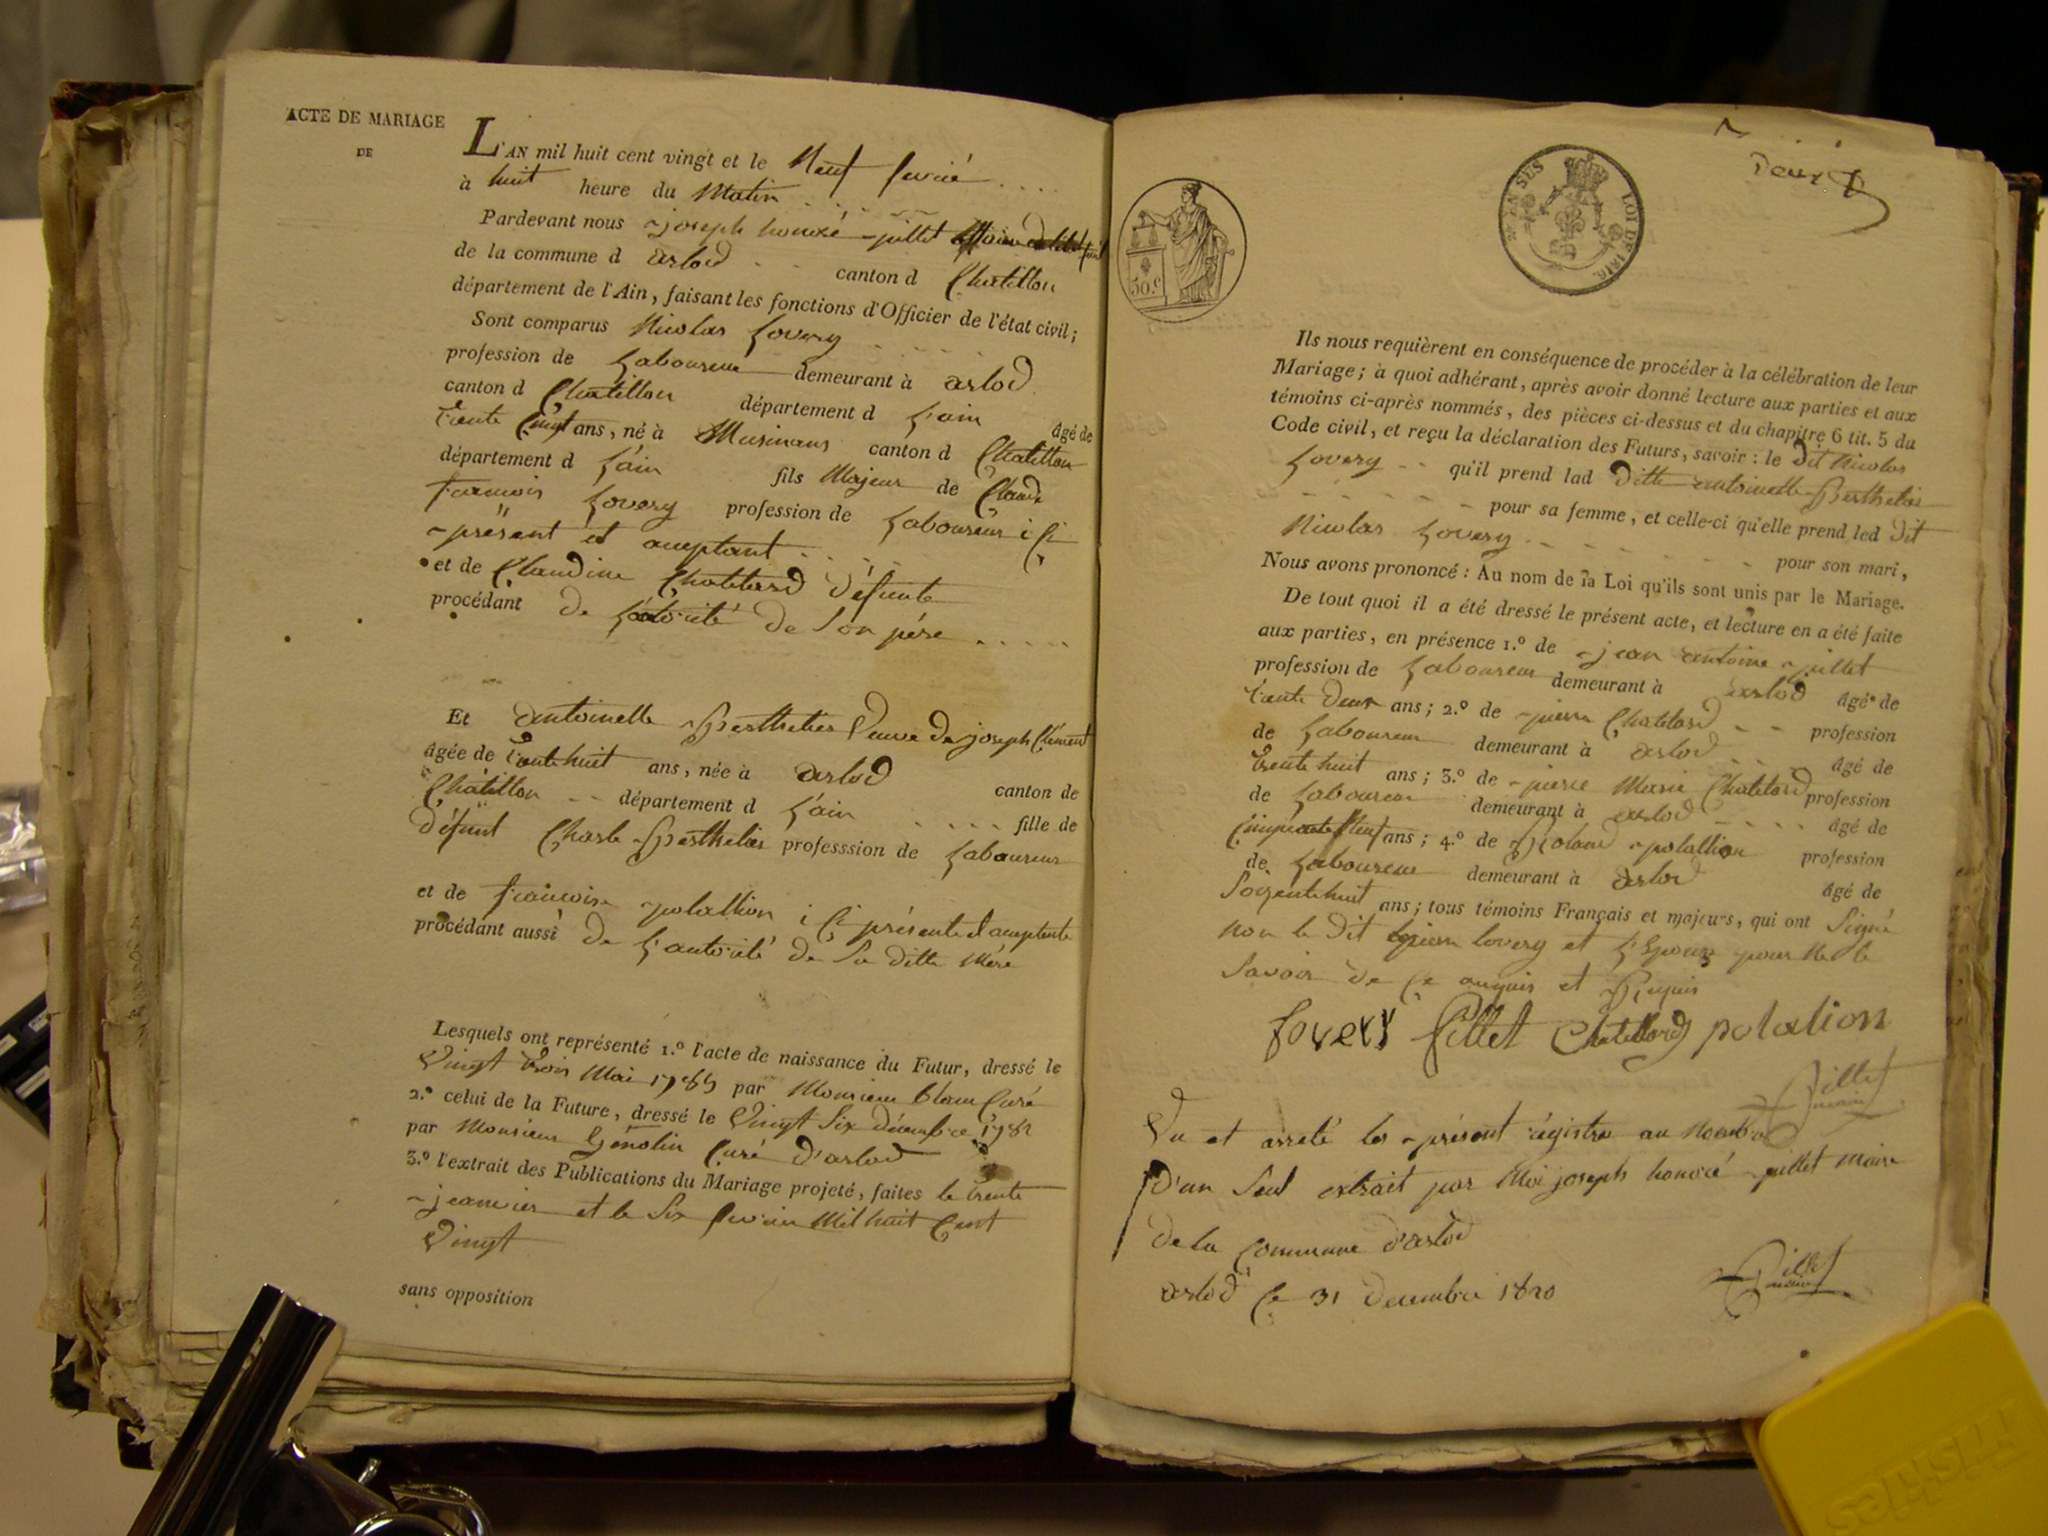 ACTE DE MARIAGE
DE
L'AN mil huit cent vingt et le Neuf fevrié
à huit heure du Matin
Pardevant nous joseph honoré pillet
de la commune d arlod canton d Chatillon
département de l'Ain, faisant les fonctions d'Officier de l'état civil;
Sont comparus Nicolas Lovery
profession de Laboureur demeurant à arlod
canton d Chatillon département d L'ain âgé de
trente Cinq ans, né à Musinans canton d Chatillon
département d L'ain fils Majeur de Claude
francois Lovery profession de Laboureur i Ci
présent et aceptant
et de Claudine Chatelard défunte
procédant de L'autorité de Son père
Et antoinette Berthelier Veuve de joseph Clément
âgée de trente huit ans, née à arlod canton de
Châtillon département d L'ain fille de
défunt Charle Berthelier professsion de Laboureur
et de francoise polallion i Ci présente et aceptente
procédant aussi de L'autorité de Sa ditte Mére
Lesquels ont représenté 1.° l'acte de naissance du Futur, dressé le
Vingt trois Mai 1785 par Monsieur blanc Curé
2.° celui de la Future, dressé le Vingt Six décembre 1782
par Monsieur Génolin Curé d'arlod
3.° l'extrait des Publications du Mariage projeté, faites le trente
jeanvier et le Six fevrier Mil huit Cent
Vingt
sans opposition
deux
50.c
Ils nous requièrent en conséquence de procéder à la célébration de leur
Mariage; à quoi adhérant, après avoir donné lecture aux parties et aux
témoins ci-après nommés, des pièces ci-dessus et du chapitre 6 tit. 5 du
Code civil, et reçu la déclaration des Futurs, savoir: le dit Nicolas
Lovery qu'il prend lad ditte antoinette Berthelier
pour sa femme, et celle-ci qu'elle prend led dit
Nicolas Lovery pour son mari,
Nous avons prononcé: Au nom de la Loi qu'ils sont unis par le Mariage.
De tout quoi il a été dressé le présent acte, et lecture en a été faite
aux parties, en présence 1.° de jean antoine pillet
profession de Laboureur demeurant à arlod âgé de
trente deux ans; 2.° de pierre Chatelard profession
de Laboureur demeurant à arlod âgé de
trente huit ans; 3.° de pierre Marie Chatelard profession
de Laboureur demeurant à arlod âgé de
Cinquante Neuf ans; 4.° de Roland polallion profession
de Laboureur demeurant à arlod âgé de
Soixente huit ans; tous témoins Français et majeurs, qui ont Signé
non le dit Lovery et L'Epouze pour Ne le
Savoir de Ce anquis et Requis
Lovery pillet Chatellard polalion
pillet
maire
Vu et arreté les présent régistre au Nombre
D'un Seul extrait par Moi joseph honoré pillet maire
de la Commune d'arlod
arlod Ce 31 decembre 1820
pillet
maire
Friskies